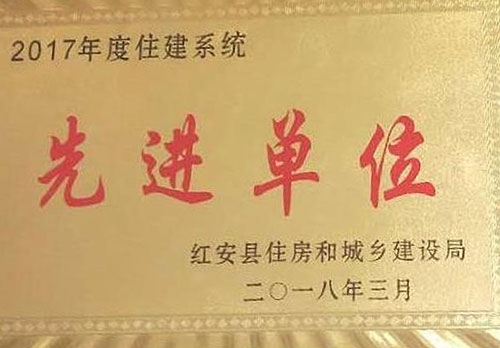 2017年度住建系统
先进单位
红安县住房和城乡建设局
二〇一八年三月